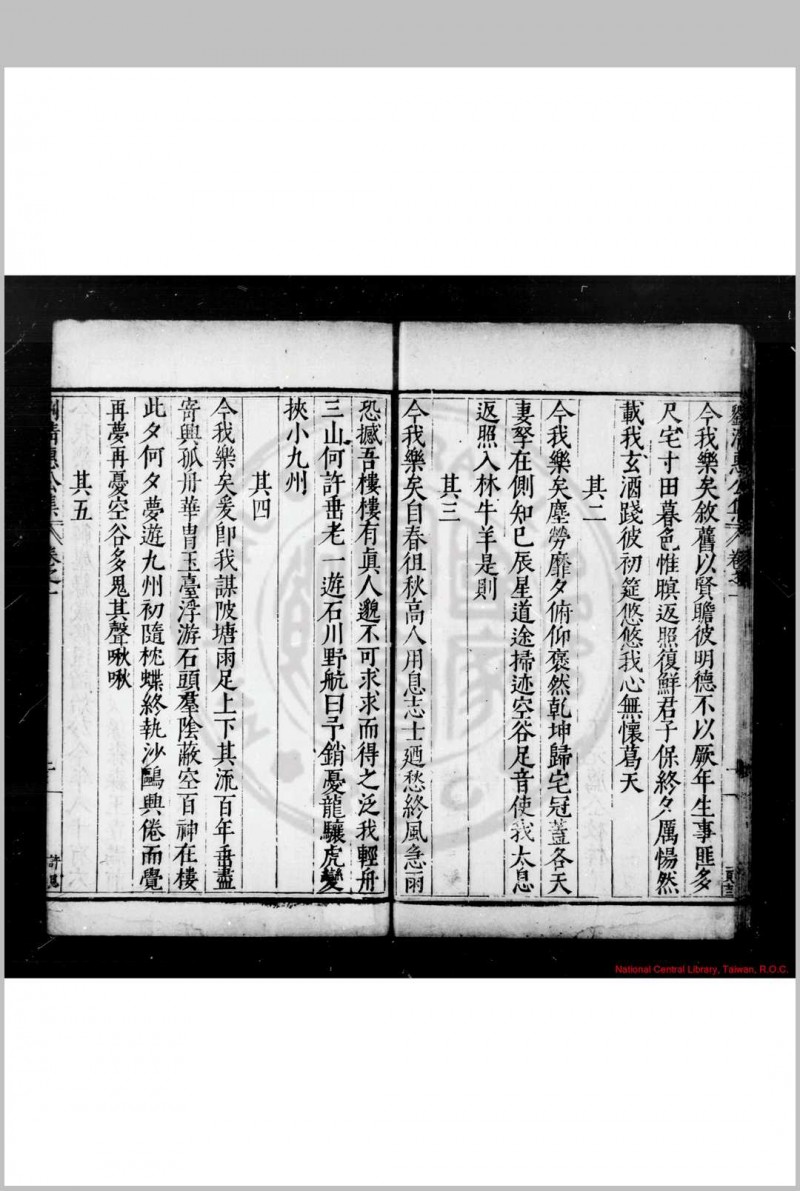 劉清惠公集 卷之一
今我樂矣敘舊以賢瞻彼明德不以厥年生事匪多
尺宅寸田暮色惟瞑返照復鮮君子保終夕厲惕然
載我玄酒踐彼初筵悠悠我心無懷葛天
其二
今我樂矣塵勞靡夕俯仰褎然乾坤歸宅冠蓋各天
妻孥在側知己辰星道途掃迹空谷足音使我太息
返照入林牛羊是則
其三
今我樂矣自春徂秋高人用息志士廼愁終風急雨
恐撼吾樓樓有真人邈不可求求而得之泛我輕舟
三山何許垂老一遊石川野航曰予銷憂龍驤虎變
挾小九州
其四
今我樂矣爰即我謀陂塘雨足上下其流百年垂盡
寄興孤舟華胄玉臺浮游石頭羣陰蔽空百神在樓
此夕何夕夢遊九州初隨枕蝶終執沙鷗興倦而覺
再夢再憂空谷多鬼其聲啾啾
其五
劉清惠公集 卷之一
National Central Library, Taiwan, R.O.C.